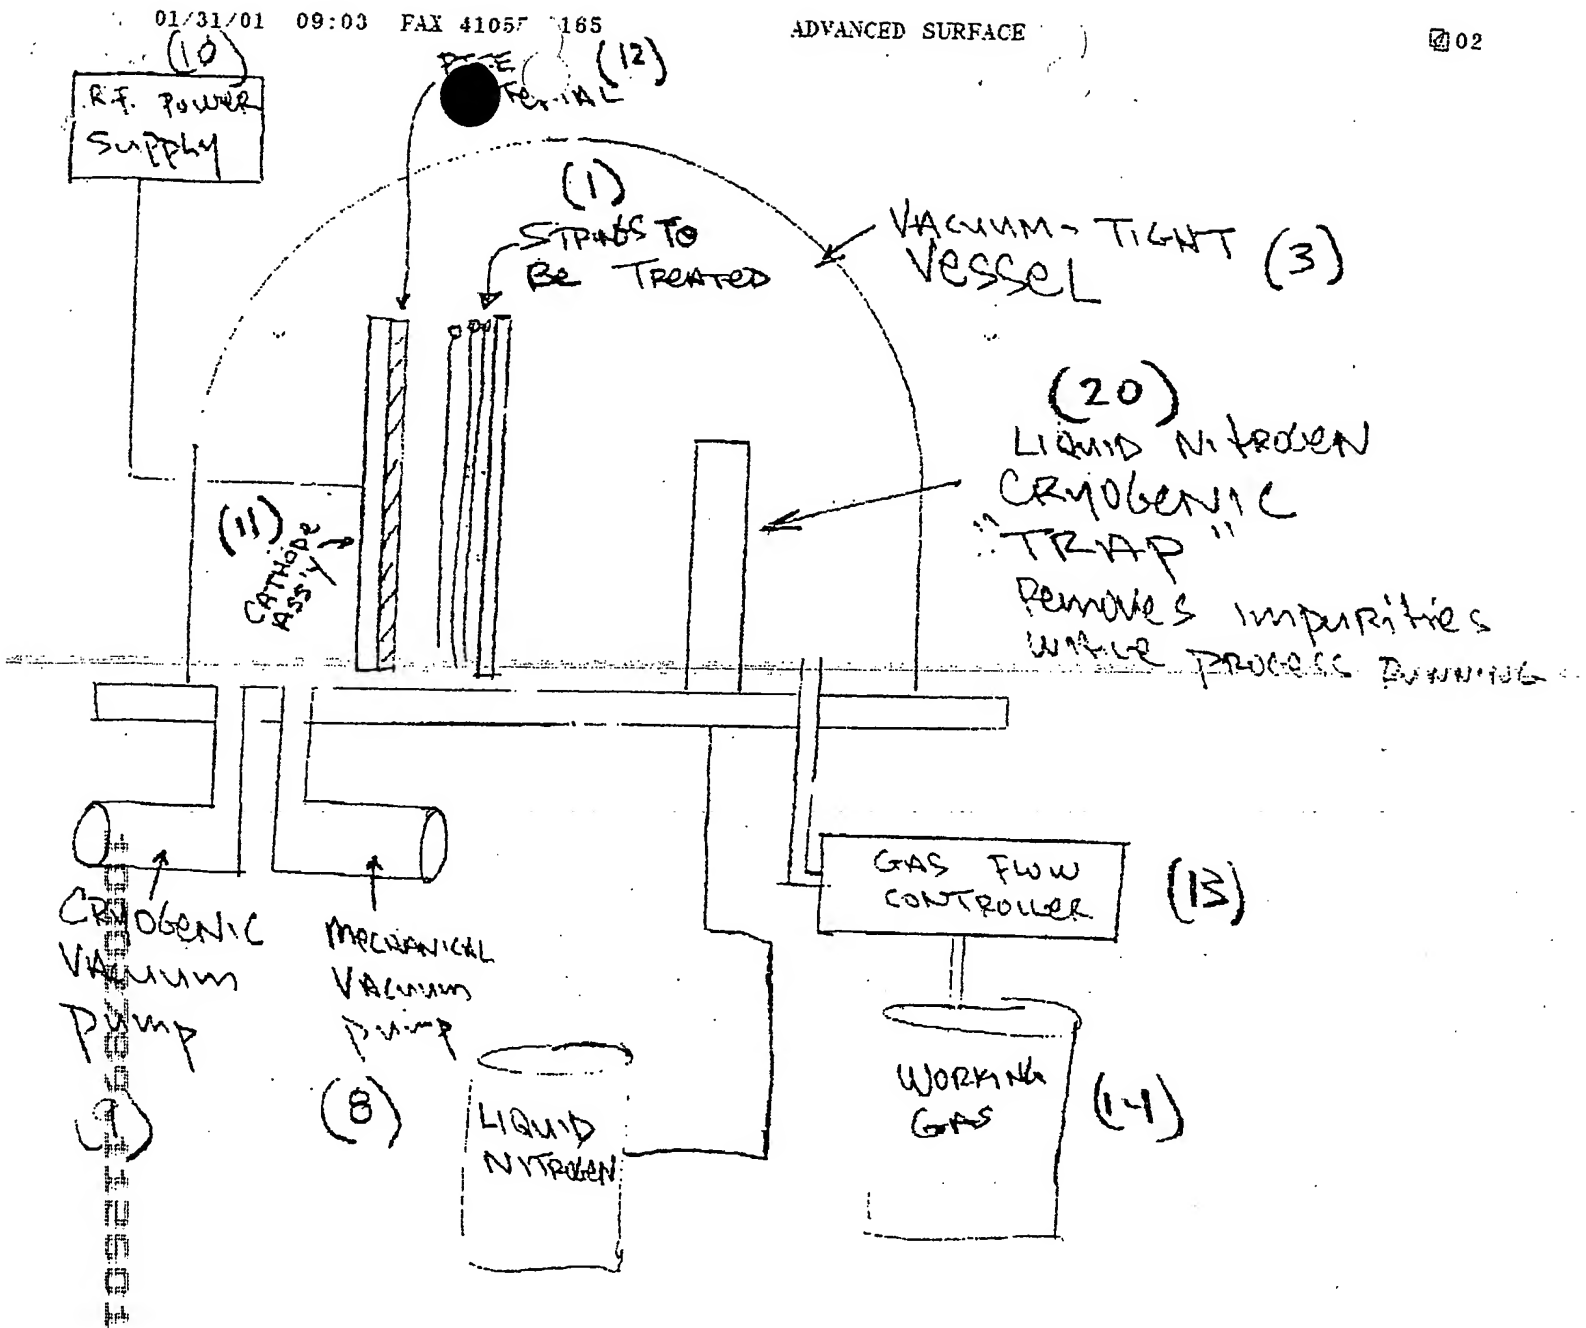 01/31/01 09:03 FAX 41055 165 ADVANCED SURFACE 02
(10)
R.F. POWER
SUPPLY
(12)
(1)
STRINGS TO
BE TREATED
VACUUM-TIGHT
VESSEL
(3)
(20)
LIQUID NITROGEN
CRYOGENIC
"TRAP"
REMOVES IMPURITIES
WHILE PROCESS RUNNING
(11)
CATHODE
ASS'Y
GAS FLOW
CONTROLLER
(13)
CRYOGENIC
VACUUM
PUMP
(9)
MECHANICAL
VACUUM
PUMP
(8)
LIQUID
NITROGEN
WORKING
GAS
(14)